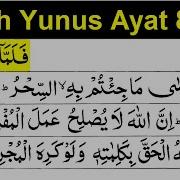 h Yunus Ayat 8
فَلَمَّآ
سٰى مَا جِئْتُمْ بِهِ ۙ السِّحْرُ ؕ
ؕ اِنَّ اللّٰهَ لَا يُصْلِحُ عَمَلَ الْمُفْ
هُ الْحَقَّ بِكَلِمٰتِهٖ وَلَوْ كَرِهَ الْمُجْرِ